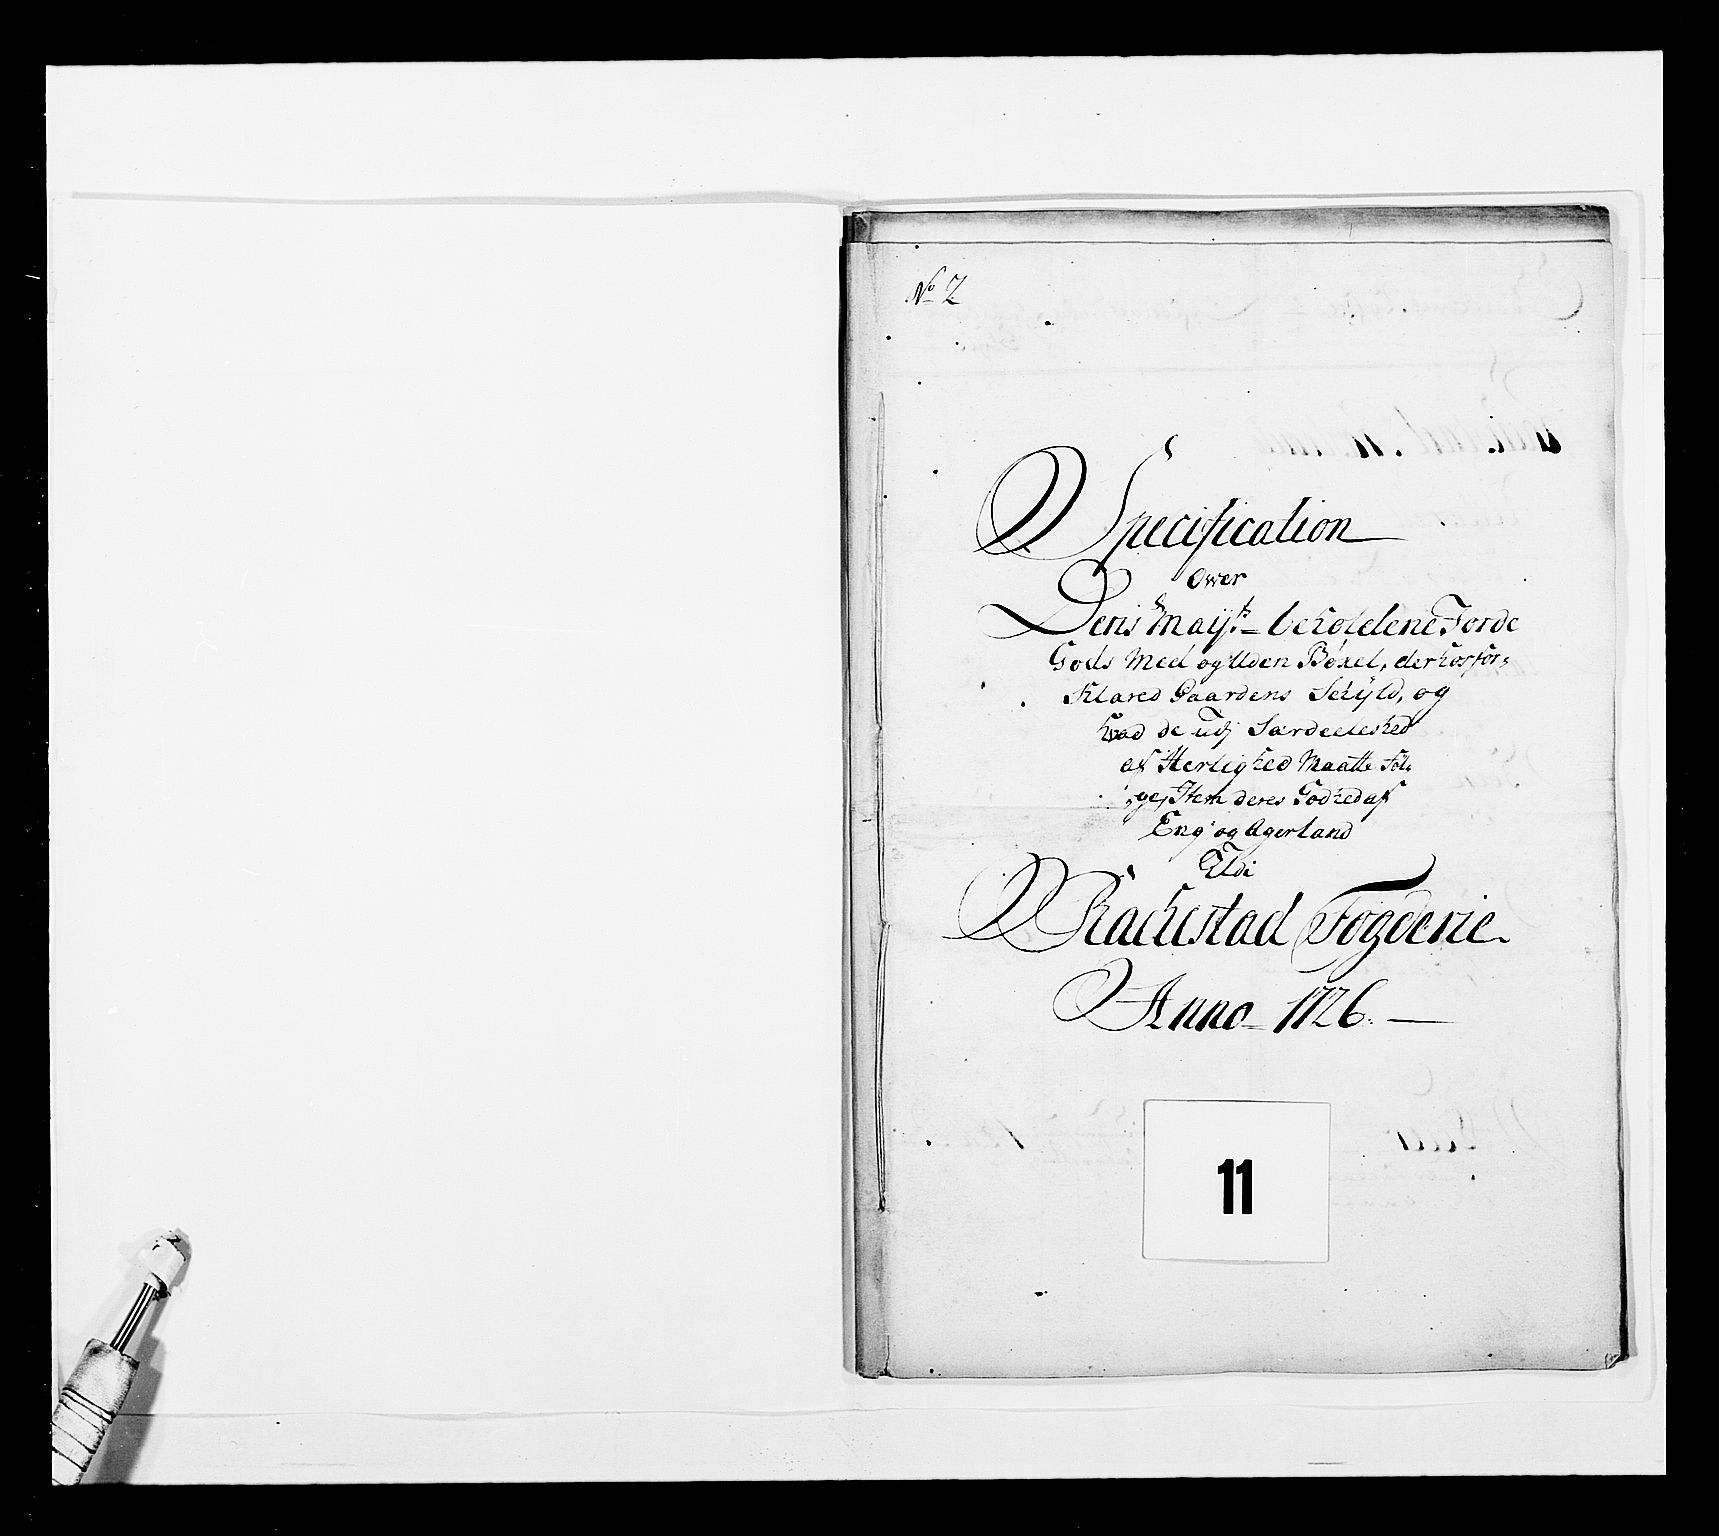 No 2
Specification
Over
Deris Mayts beholdene Jorde
Gods Med og Uden Bøxel, der hos for,
Klared Gaardens Schÿld, og
hvad de Udj Særdeeleshed
af Herlighed Maatte føl,
ge, Item deres Godhed af
Eng og Agerland
Udi
Rachestad Fogderie.
Anno 1726.
11